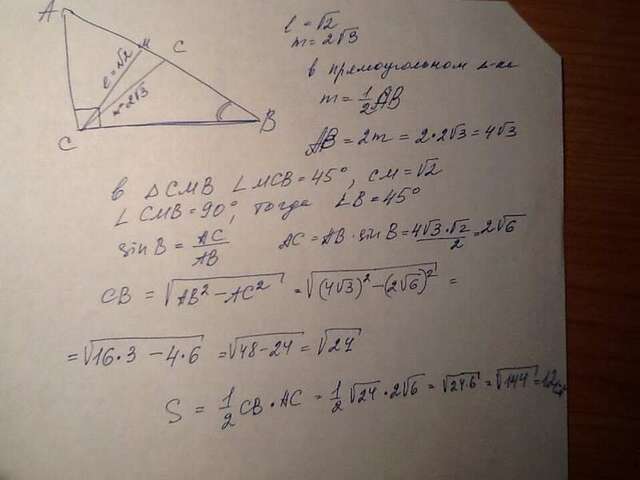 A
M
C
l = √2
m = 2√3
C
B
l = √2
m = 2√3
в прямоугольном
m = 1/2 AB
AB = 2m = 2·2√3 = 4√3
В △CMB ∠MCB = 45°, CM = √2
∠CMB = 90°, тогда ∠B = 45°
sin B = AC/AB   AC = AB·sin B = 4√3·√2/2 = 2√6
CB = √(AB² − AC²) = √((4√3)² − (2√6)²) =
= √(16·3 − 4·6) = √(48 − 24) = √24
S = 1/2 CB·AC = 1/2 √24·2√6 = √(24·6) = √144 = 12